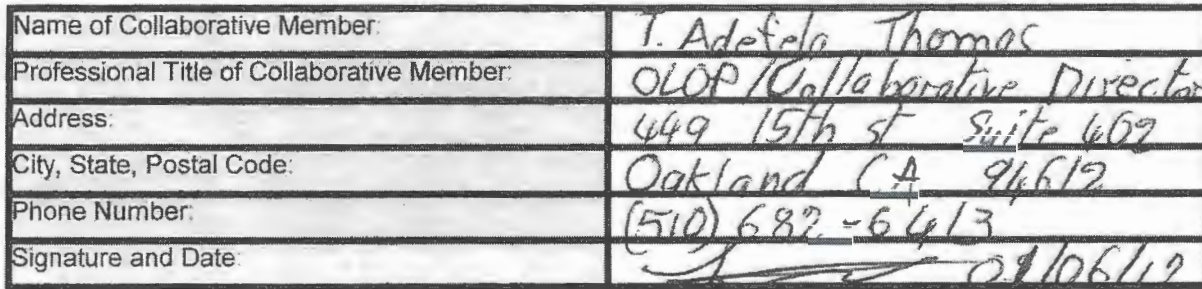 Name of Collaborative Member: T. Adefela Thomas
Professional Title of Collaborative Member: OLOP/Collaborative Director
Address: 449 15th st Suite 402
City, State, Postal Code: Oakland CA 94612
Phone Number: (510) 682-6413
Signature and Date: /06/12